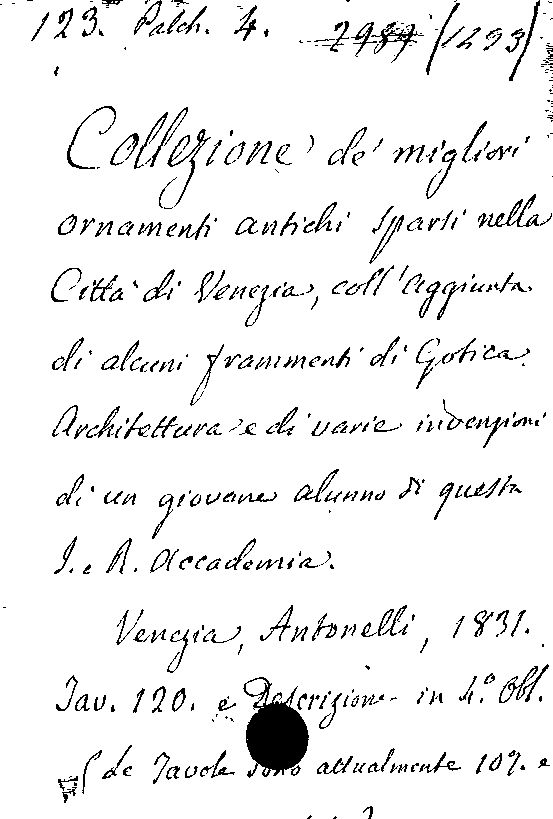 123. Palch. 4. 2987 (1493)
Collezione de' migliori
ornamenti antichi sparsi nella
Città di Venezia, coll'aggiunta
di alcuni frammenti di Gotica
Architettura e di varie invenzioni
di un giovane alunno di questa
I. e R. Accademia.
Venezia, Antonelli, 1831.
Tav. 120. e Descrizione in 4.° Obl.
le Tavole sono attualmente 107. e